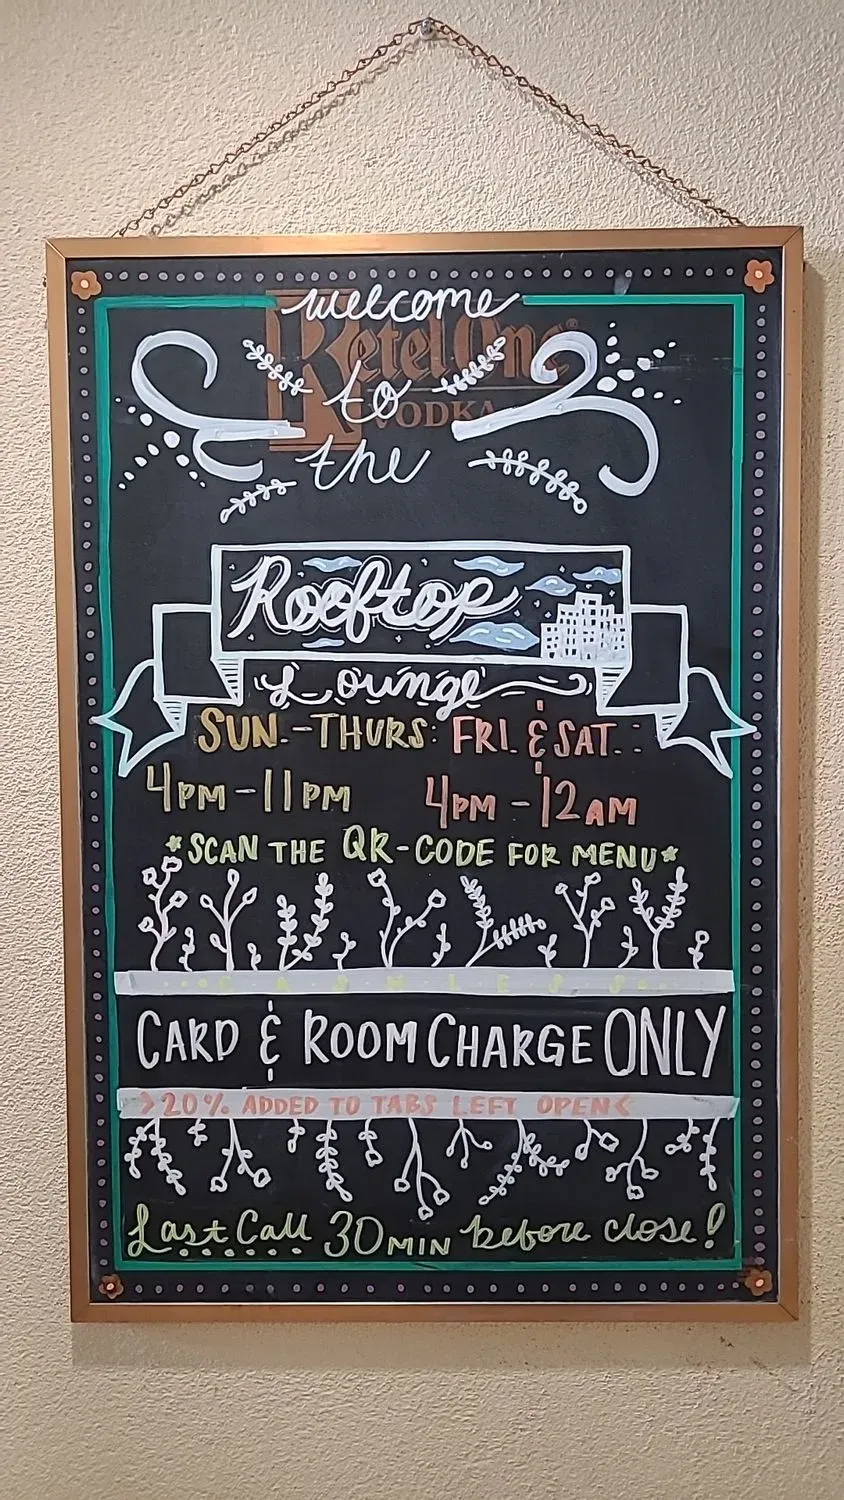 welcome
Ketel One®
to
VODKA
the
Rooftop
Lounge
SUN.-THURS: FRI. & SAT.:
4PM-11PM 4PM-12AM
*SCAN THE QR-CODE FOR MENU*
CASHLESS
CARD & ROOM CHARGE ONLY
>20% ADDED TO TABS LEFT OPEN<
Last Call 30 MIN before close!